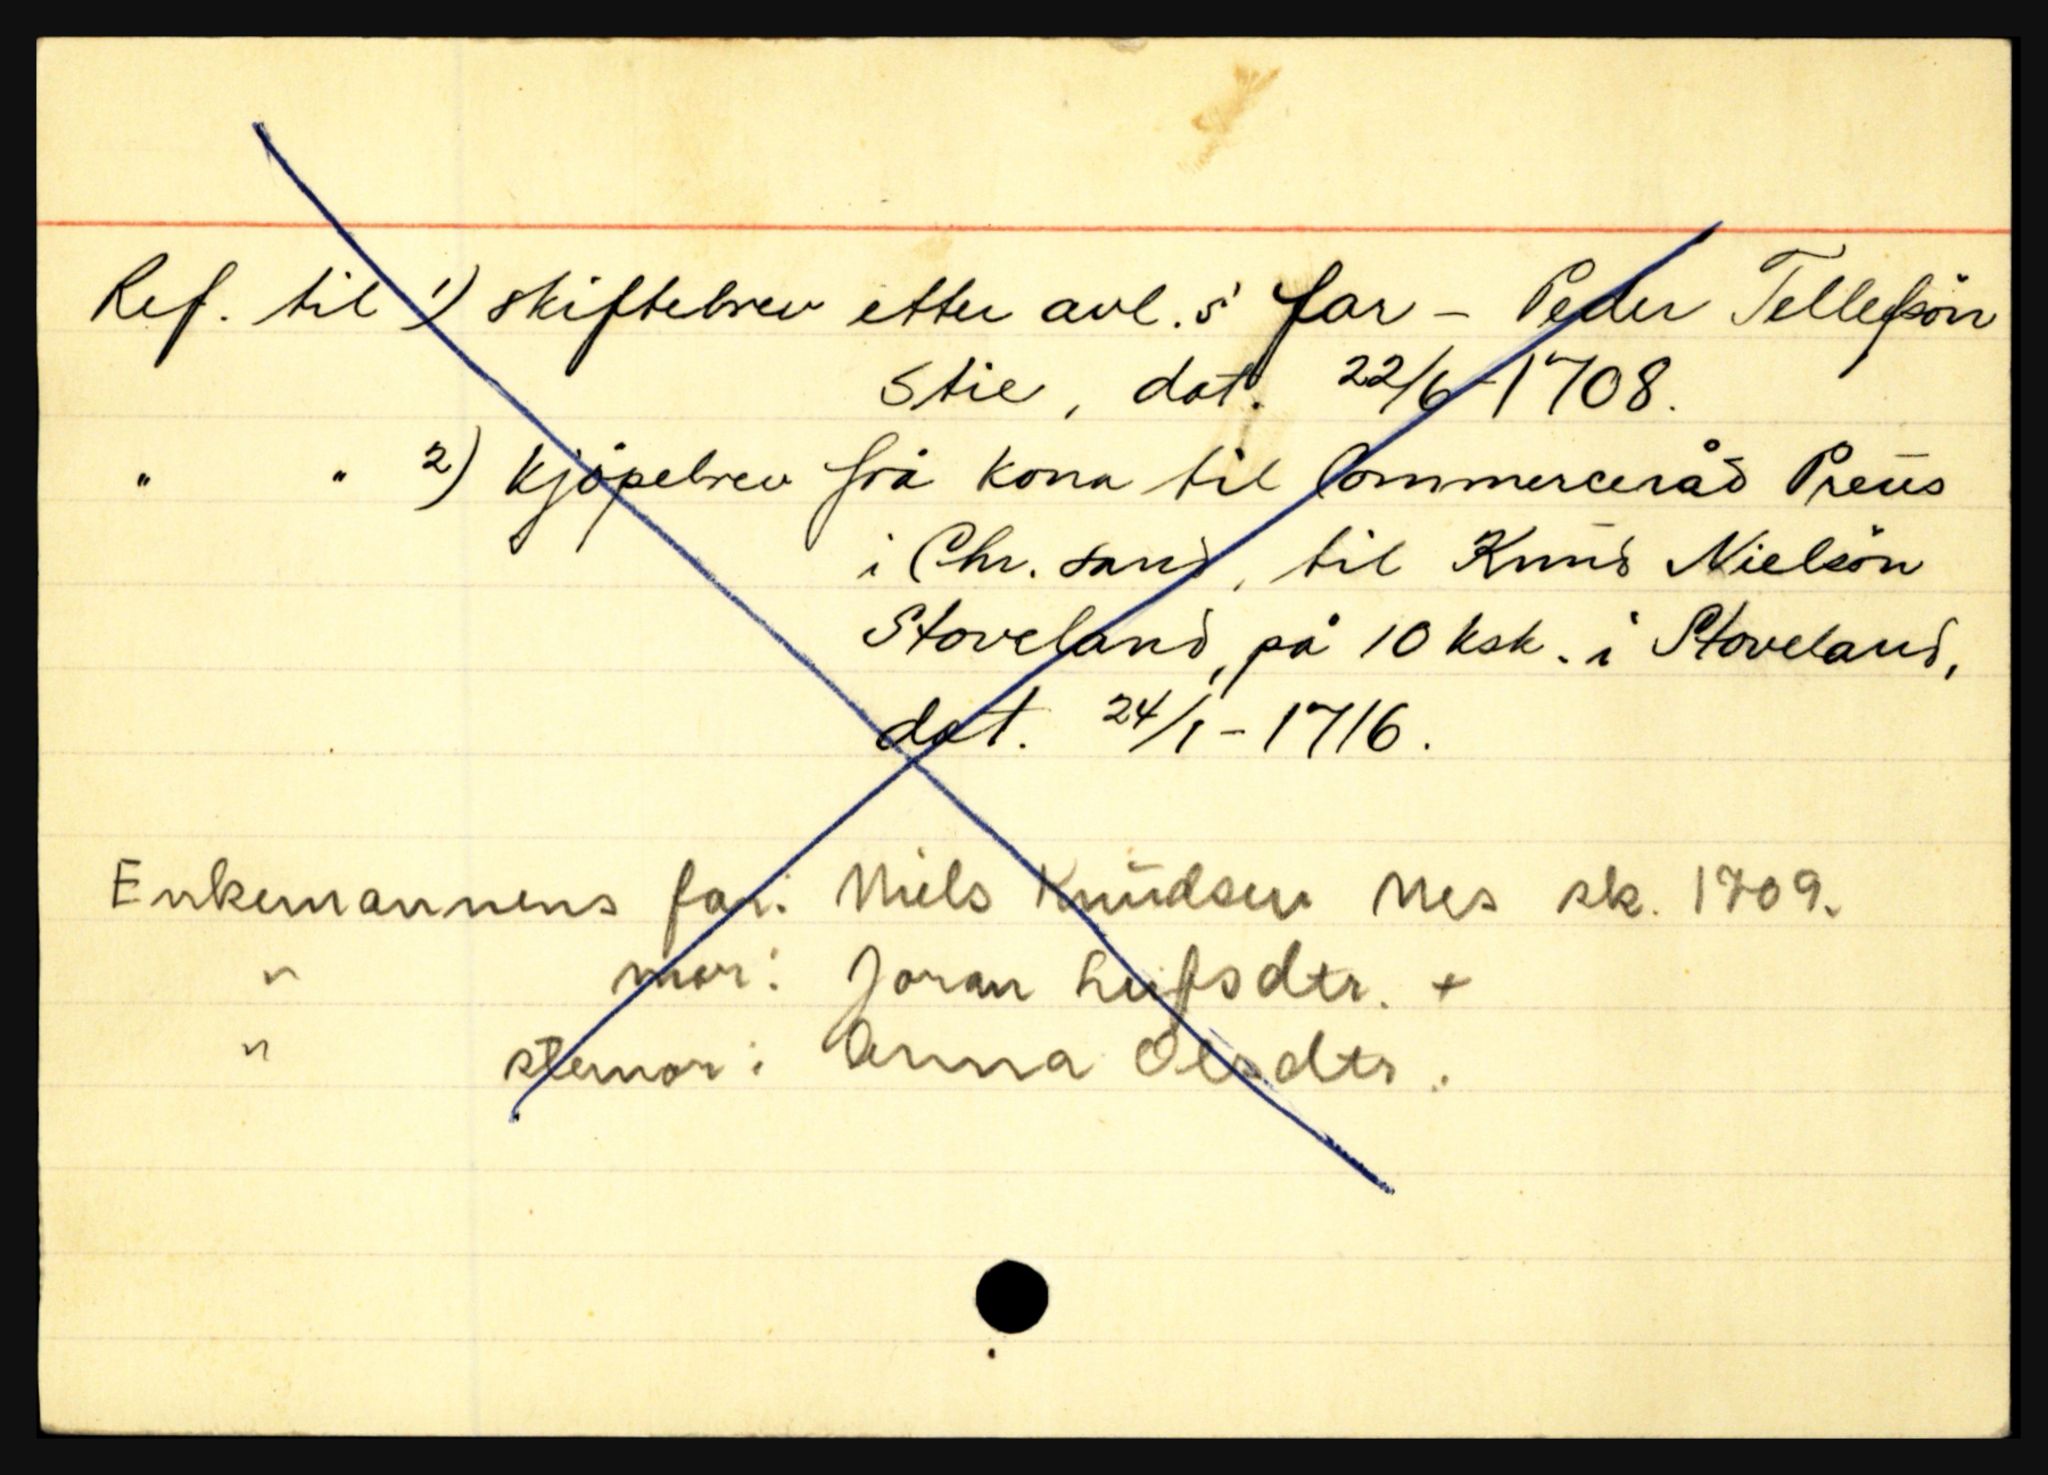 Ref. til 1) skiftebrev etter avl.s far - Peder Tellefsön
Stie, dat. 22/6-1708.
" " 2) kjöpebrev frå kona til Commerceråd Preus
i Chr. sand, til Knud Nielsön
Stoveland, på 10 ksk. i Stoveland,
dat. 24/1-1716.
Enkemannens far: Niels Knudsen Nes sk. 1709.
" mor: Joran Leifsdtr. +
" stemor: Anna Olsdtr.